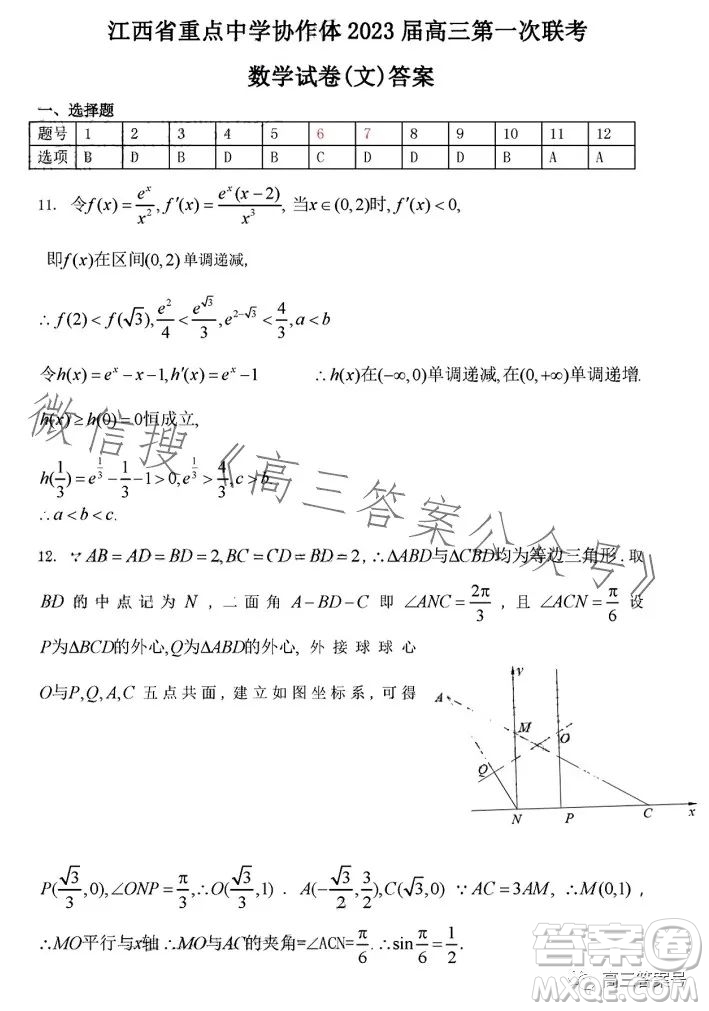 江西省重点中学协作体 2023 届高三第一次联考
数学试卷(文)答案
一、选择题
题号 1 2 3 4 5 6 7 8 9 10 11 12
选项 B D B D B C D D D B A A
11. 令f(x)=e^x/x^2, f′(x)=e^x(x−2)/x^3, 当x∈(0,2)时, f′(x)<0,
即f(x)在区间(0,2)单调递减,
∴f(2)<f(√3), e^2/4<e^√3/3, e^(2−√3)<4/3, a<b
令h(x)=e^x−x−1, h′(x)=e^x−1 ∴h(x)在(−∞,0)单调递减,在(0,+∞)单调递增.
h(x)≥h(0)=0恒成立,
h(1/3)=e^(1/3)−1/3−1>0, e^(1/3)>4/3, c>b.
∴a<b<c.
12. ∵AB=AD=BD=2,BC=CD=BD=2,∴ΔABD与ΔCBD均为等边三角形.取
BD 的中点记为 N ,二面角 A−BD−C 即 ∠ANC=2π/3 ,且 ∠ACN=π/6 设
P为ΔBCD的外心,Q为ΔABD的外心, 外接球球心
O与P,Q,A,C 五点共面,建立如图坐标系,可得
y
A
M
O
Q
N P C x
P(√3/3,0),∠ONP=π/3,∴O(√3/3,1) . A(−√3/2,3/2),C(√3,0) ∵AC=3AM, ∴M(0,1) ,
∴MO平行与x轴 ∴MO与AC的夹角=∠ACN=π/6.∴sin π/6=1/2.
微信搜《高三答案公众号》
高三答案号